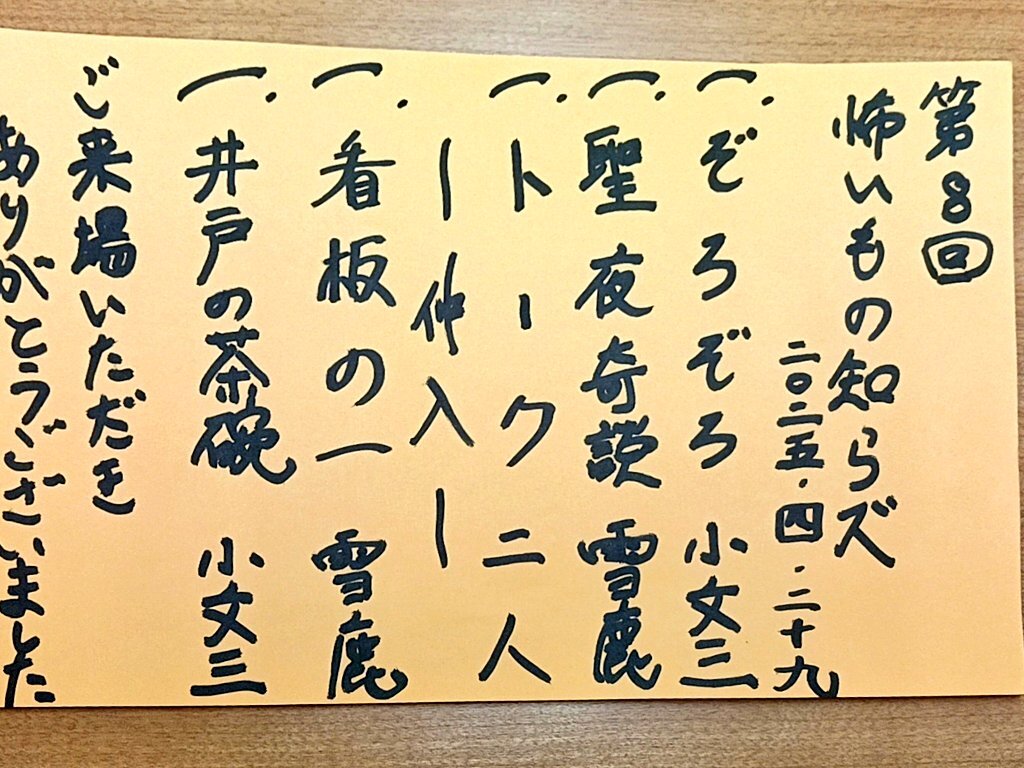 第8回
怖いもの知らズ
二〇二五.四.二十九
一.ぞろぞろ 小文三
一.聖夜奇談 雪鹿
一.トーク 二人
ー仲入ー
一.看板の一 雪鹿
一.井戸の茶碗 小文三
ご来場いただき
ありがとうございました